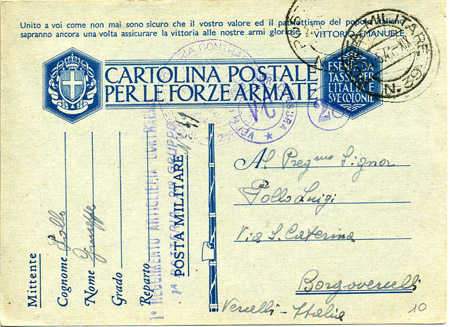 Unito a voi come non mai sono sicuro che il vostro valore ed il patriottismo del popolo italiano
sapranno ancora una volta assicurare la vittoria alle nostre armi gloriose. VITTORIO EMANUELE
CARTOLINA POSTALE
PER LE FORZE ARMATE
ESENTE DA
TASSA IN
ITALIA E
SVE COLONIE
MILITARE
N. 
VI
2
Al Preg.mo Signor
Pollo Luigi
Via S. Caterina
Borgovercelli
Vercelli - Italia
10
Mittente
Cognome Pollo
Nome Giuseppe
Grado
Reparto
1° REGGIMENTO ARTIGLIERIA
POSTA MILITARE N.